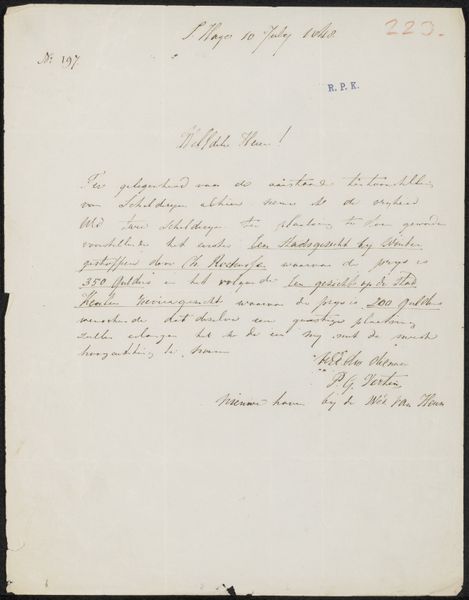 S'Hage 10 July 1848
223.
No. 197.
R. P. K.
WelEdele Heeren!
Ter gelegenheid van de aanstaande tentoonstelling
van Schilderijen alhier neme ik de vrijheid
UEd twee Schilderijen ter plaatsing te
voorstellende het eerste Een Stadsgezicht by Winter
gestoffeerd door Ch. Rochussen waarvan de prijs is
350 Guldens en het volgende Een gezicht op de Stad
waarvan de prijs is 200 Guldens
dat dezelve een gunstige plaatsing
zullen erlangen heb ik de eer mij met de meeste
hoogachting te noemen
UEd Dienaar
P. G. Vertin
Nieuwe haven bij de Wed van